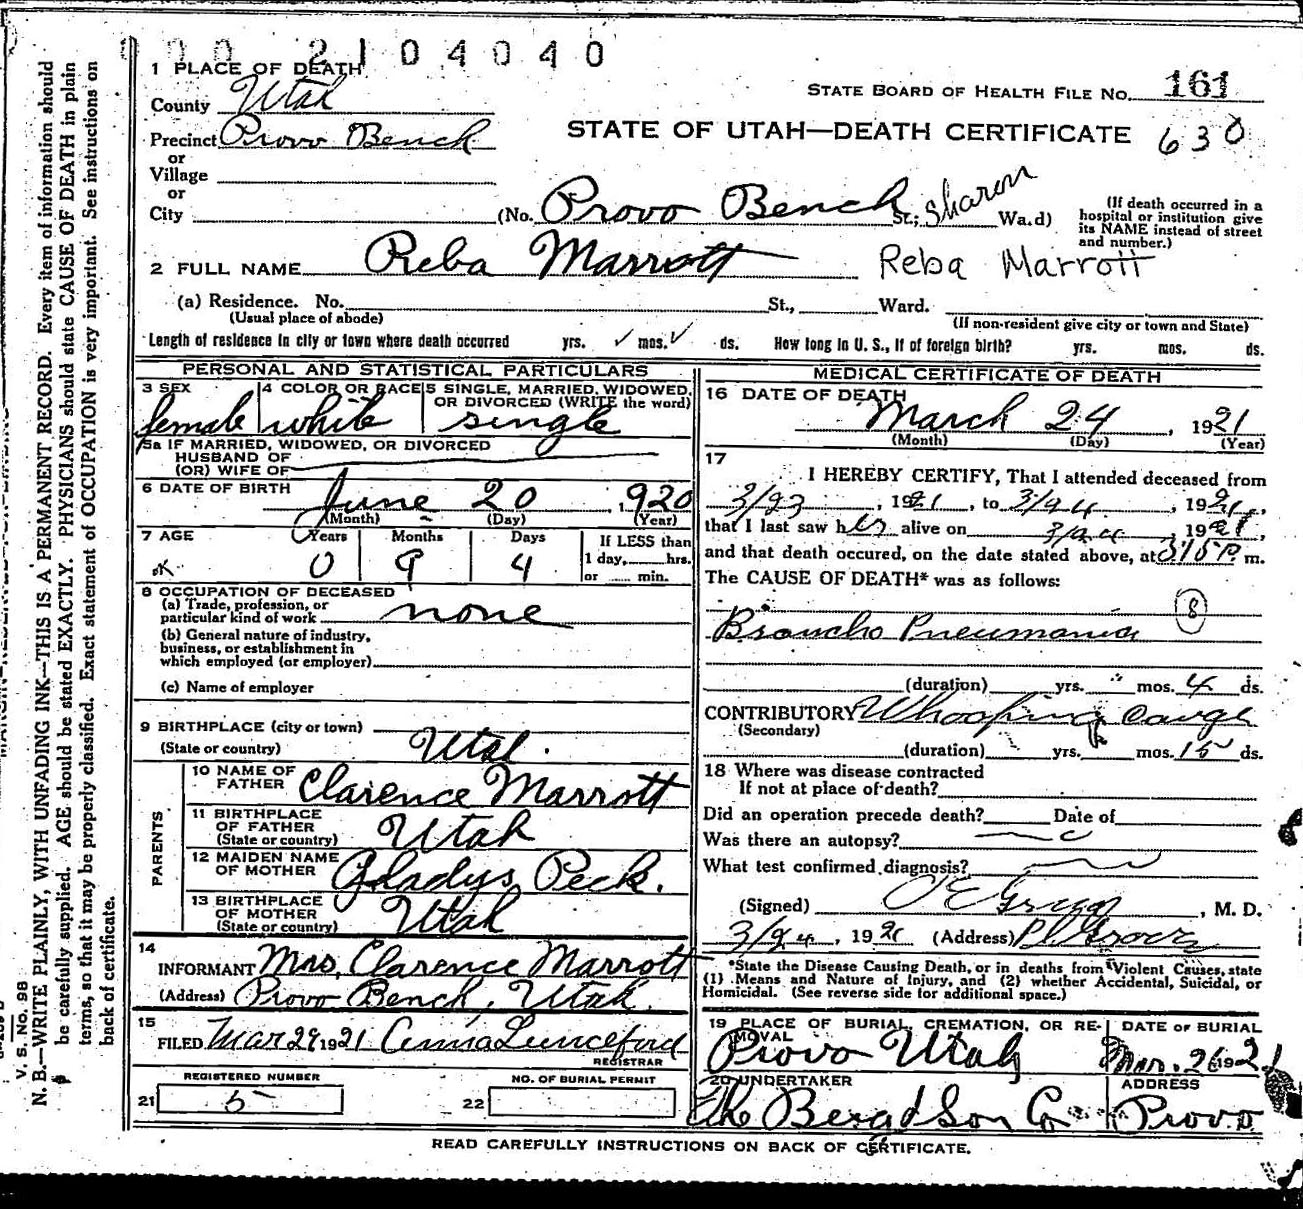 000 2104040
1 PLACE OF DEATH
STATE BOARD OF HEALTH FILE NO. 161
County Utah
Precinct Provo Bench
STATE OF UTAH—DEATH CERTIFICATE 630
or
Village
or
City (No. Provo Bench St.; Sharon Wa.d) (If death occurred in a hospital or institution give its NAME instead of street and number.)
2 FULL NAME Reba Marrott Reba Marrott
(a) Residence. No. St., Ward.
(Usual place of abode) (If non-resident give city or town and State)
Length of residence in city or town where death occurred yrs. mos. ds. How long in U. S., if of foreign birth? yrs. mos. ds.
PERSONAL AND STATISTICAL PARTICULARS
3 SEX female
4 COLOR OR RACE white
5 SINGLE, MARRIED, WIDOWED, OR DIVORCED (WRITE the word) single
5a IF MARRIED, WIDOWED, OR DIVORCED
HUSBAND OF
(OR) WIFE OF
6 DATE OF BIRTH June 20, 1920
(Month) (Day) (Year)
7 AGE Years Months Days If LESS than
0 9 4 1 day, hrs.
or min.
8 OCCUPATION OF DECEASED
(a) Trade, profession, or
particular kind of work none
(b) General nature of industry,
business, or establishment in
which employed (or employer)
(c) Name of employer
9 BIRTHPLACE (city or town)
(State or country) Utah.
PARENTS
10 NAME OF FATHER Clarence Marrott
11 BIRTHPLACE OF FATHER (State or country) Utah
12 MAIDEN NAME OF MOTHER Gladys Peck.
13 BIRTHPLACE OF MOTHER (State or country) Utah
14
INFORMANT Mrs. Clarence Marrott
(Address) Provo Bench, Utah.
15
FILED Mar 29 1921 Anna Lunceford
REGISTRAR
REGISTERED NUMBER NO. OF BURIAL PERMIT
21 5 22
MEDICAL CERTIFICATE OF DEATH
16 DATE OF DEATH
March 24, 1921
(Month) (Day) (Year)
17
I HEREBY CERTIFY, That I attended deceased from
3/23, 1921, to 3/24, 1921,
that I last saw her alive on 3/24, 1921,
and that death occured, on the date stated above, at 3/15 P. m.
The CAUSE OF DEATH* was as follows:
8
Broncho Pneumonia
(duration) yrs. mos. 4 ds.
CONTRIBUTORY Whooping Cough
(Secondary)
(duration) yrs. mos. 15 ds.
18 Where was disease contracted
If not at place of death?
Did an operation precede death? Date of
Was there an autopsy?
What test confirmed diagnosis?
(Signed) , M. D.
3/24, 1921 (Address) Pl Grove
*State the Disease Causing Death, or in deaths from Violent Causes, state
(1) Means and Nature of Injury, and (2) whether Accidental, Suicidal, or
Homicidal. (See reverse side for additional space.)
19 PLACE OF BURIAL, CREMATION, OR RE- DATE OF BURIAL
MOVAL
Provo Utah Mar. 26 1921
20 UNDERTAKER ADDRESS
The Berg & Son Co Provo
READ CAREFULLY INSTRUCTIONS ON BACK OF CERTIFICATE.
V. S. No. 98
N. B.—WRITE PLAINLY, WITH UNFADING INK—THIS IS A PERMANENT RECORD. Every item of information should
be carefully supplied. AGE should be stated EXACTLY. PHYSICIANS should state CAUSE OF DEATH in plain
terms, so that it may be properly classified. Exact statement of OCCUPATION is very important. See instructions on
back of certificate.